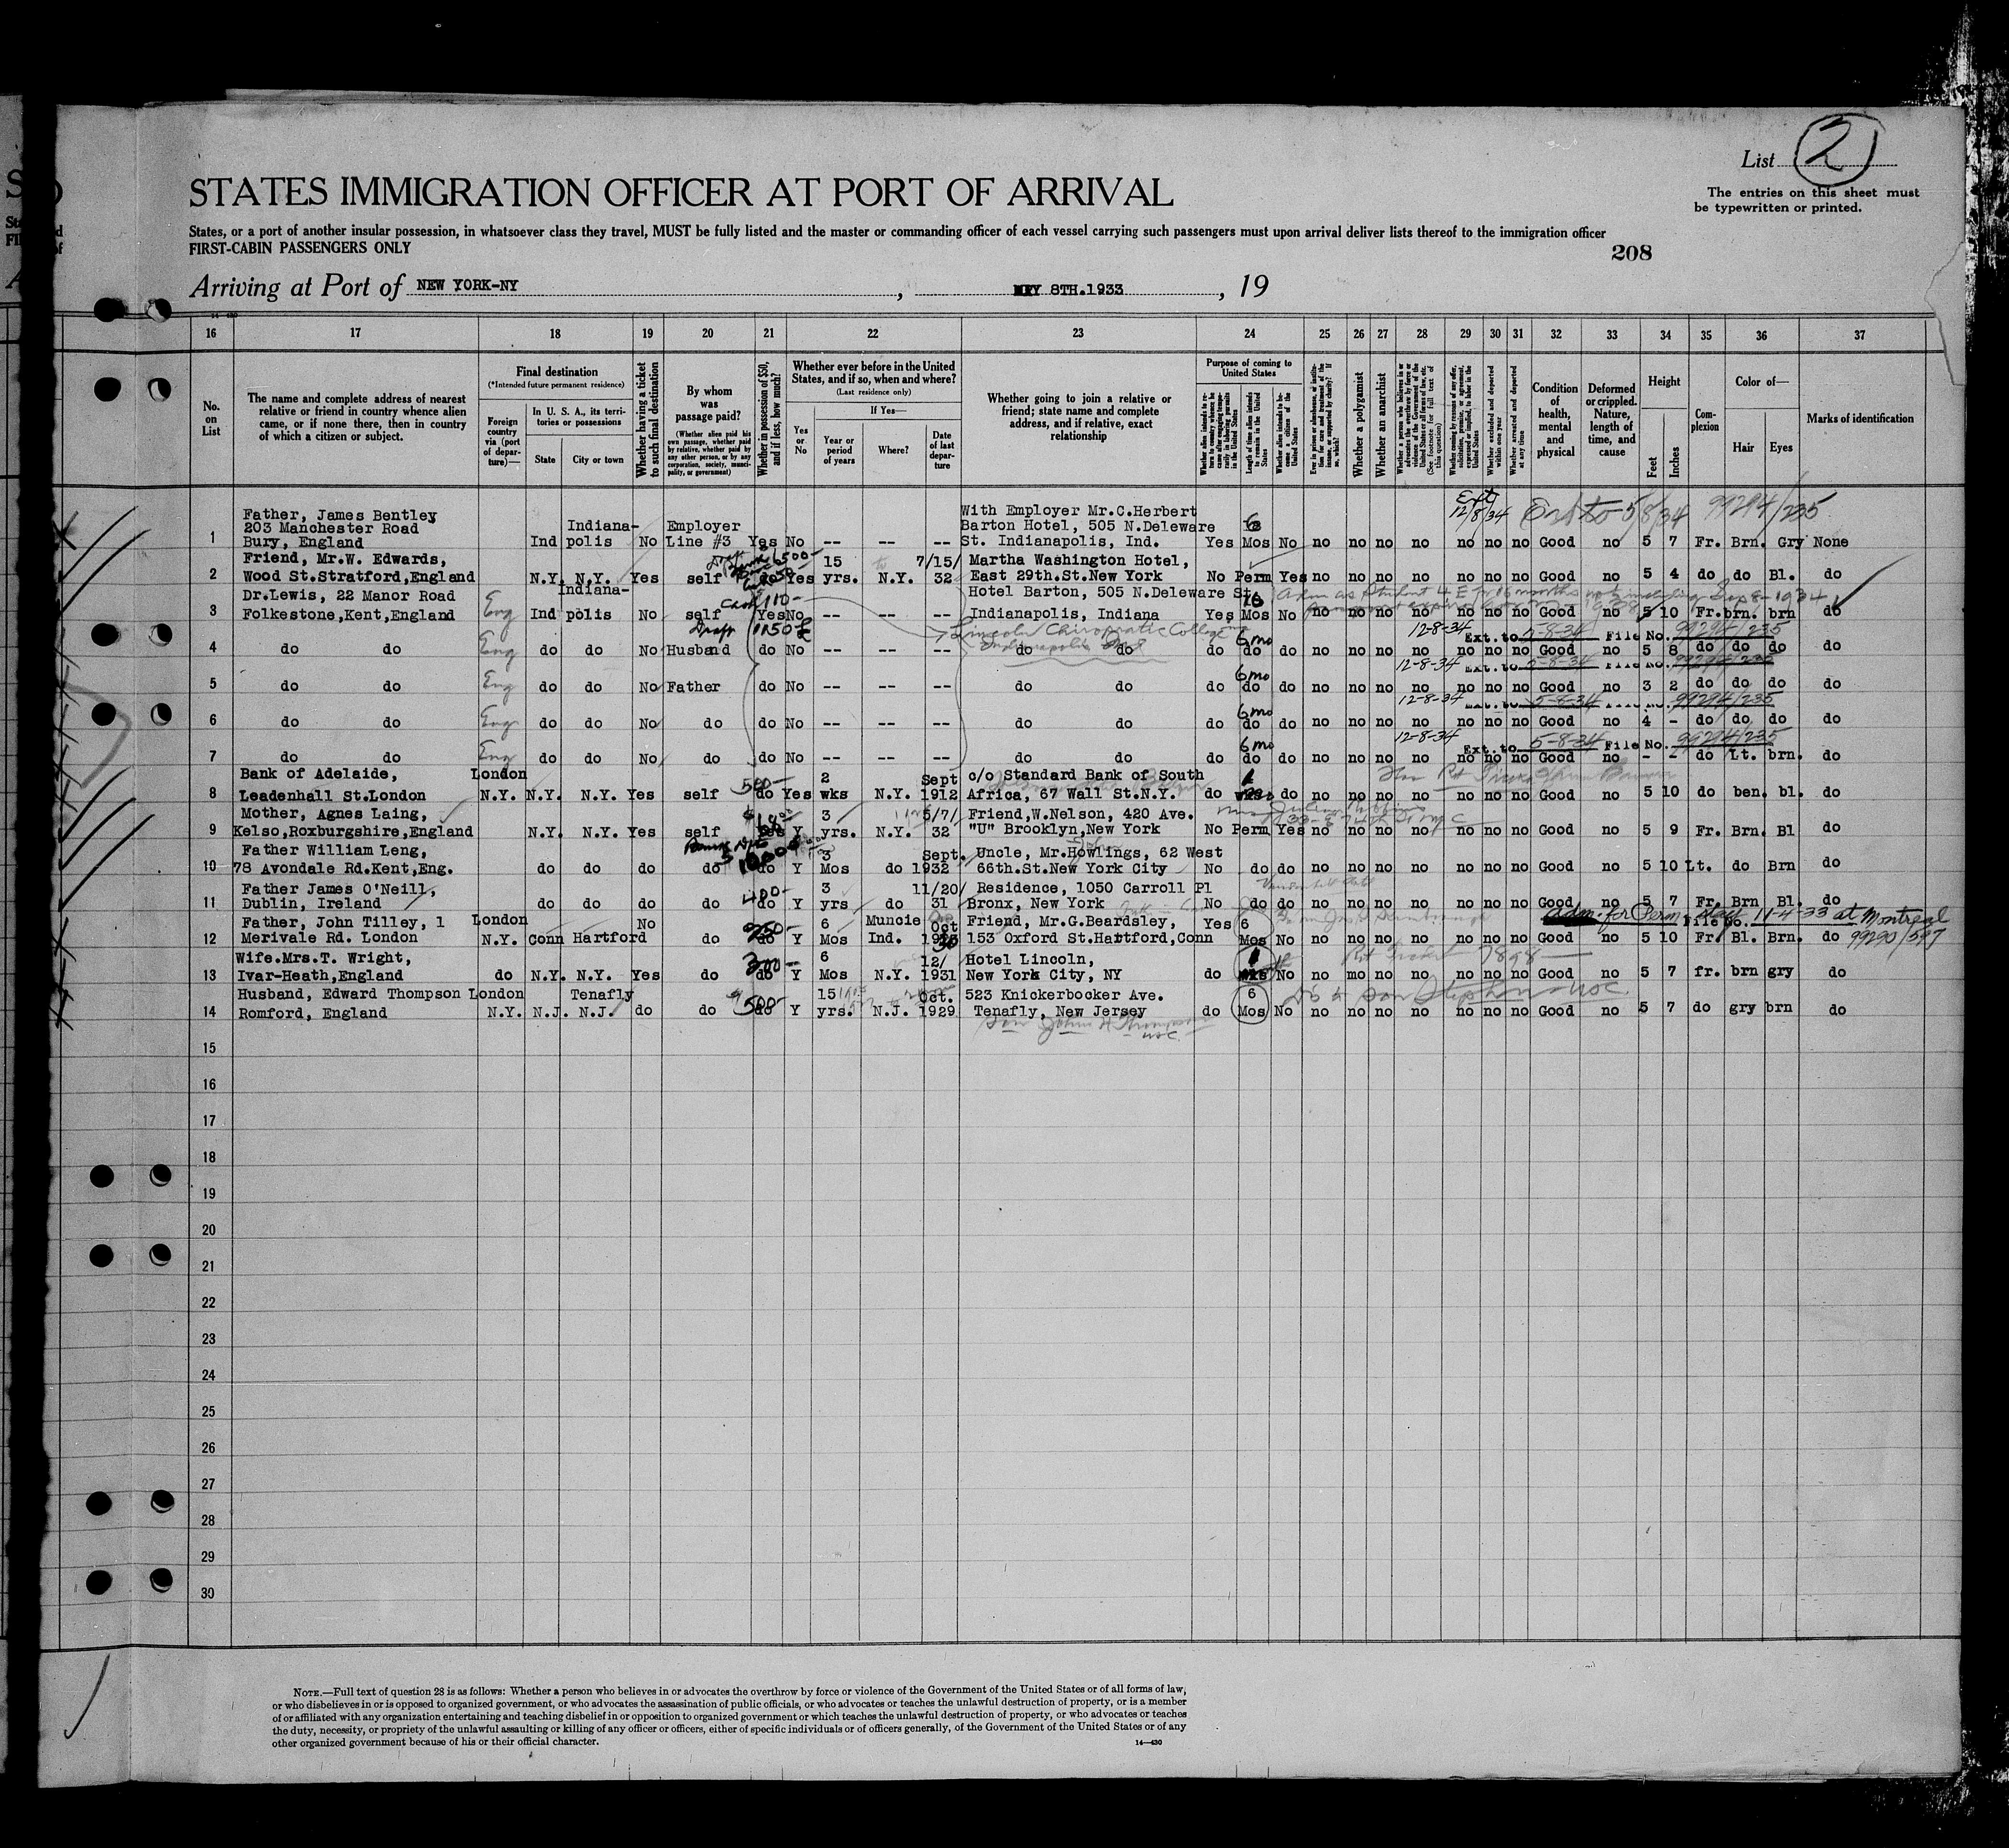 List 2
The entries on this sheet must
be typewritten or printed.
STATES IMMIGRATION OFFICER AT PORT OF ARRIVAL
States, or a port of another insular possession, in whatsoever class they travel, MUST be fully listed and the master or commanding officer of each vessel carrying such passengers must upon arrival deliver lists thereof to the immigration officer
FIRST-CABIN PASSENGERS ONLY
208
Arriving at Port of NEW YORK-NY, 8TH.1933, 19
16 17 18 19 20 21 22 23 24 25 26 27 28 29 30 31 32 33 34 35 36 37
No. on List
The name and complete address of nearest
relative or friend in country whence alien
came, or if none there, then in country
of which a citizen or subject.
Final destination
(*Intended future permanent residence)
Foreign country via (port of departure)—
In U. S. A., its territories or possessions
State
City or town
Whether having a ticket to such final destination
By whom was passage paid?
(Whether alien paid his own passage, whether paid by relative, whether paid by any other person, or by any corporation, society, municipality, or government)
Whether in possession of $50, and if less, how much?
Whether ever before in the United States, and if so, when and where?
(Last residence only)
Yes or No
If Yes—
Year or period of years
Where?
Date of last departure
Whether going to join a relative or
friend; state name and complete
address, and if relative, exact
relationship
Purpose of coming to United States
Whether alien intends to return to country whence he came after engaging temporarily in laboring pursuits in the United States
Length of time alien intends to remain in the United States
Whether alien intends to become a citizen of the United States
Whether a polygamist
Whether an anarchist
Whether excluded and deported within one year
Whether arrested and deported at any time
Condition of health, mental and physical
Deformed or crippled. Nature, length of time, and cause
Height
Feet
Inches
Complexion
Color of—
Hair
Eyes
Marks of identification
Ext 12/8/34 Ext to 5/8/34 99294/235
Father, James Bentley With Employer Mr.C.Herbert
203 Manchester Road Indiana- Employer Barton Hotel, 505 N.Deleware 6
1 Bury, England Ind polis No Line #3 Yes No -- -- -- St. Indianapolis, Ind. Yes Mos No no no no no no no no Good no 5 7 Fr. Brn. Gry None
Friend, Mr.W. Edwards, 15 7/15/ Martha Washington Hotel,
2 Wood St.Stratford,England N.Y. N.Y. Yes self do Yes yrs. N.Y. 32 East 29th.St.New York No Perm Yes no no no no no no no Good no 5 4 do do Bl. do
Dr.Lewis, 22 Manor Road Indiana- Cash 110- Hotel Barton, 505 N.Deleware St.
3 Folkestone,Kent,England Eng Ind polis No self Yes No -- -- -- Indianapolis, Indiana Yes Mos No no no no no no no no Good no 5 10 Fr. brn. brn do
Draft 1150£ Lincoln Chiropratic College 6 mo 12-8-34 Ext. to 5-8-34 File No. 99294/235
4 do do Eng do do No Husband do No -- -- -- do do do do do no no no no no no no Good no 5 8 do do do do
6 mo 12-8-34 Ext. to 5-8-34 File No. 99294/235
5 do do Eng do do No Father do No -- -- -- do do do do do no no no no no no no Good no 3 2 do do do do
6 mo 12-8-34 Ext. to 5-8-34 File No. 99294/235
6 do do Eng do do No do do No -- -- -- do do do do do no no no no no no no Good no 4 - do do do do
6 mo 12-8-34 Ext. to 5-8-34 File No. 99294/235
7 do do Eng do do No do do No -- -- -- do do do do do no no no no no no no Good no - - do Lt. brn. do
Bank of Adelaide, London 500- 2 Sept c/o Standard Bank of South 1
8 Leadenhall St.London N.Y. N.Y. N.Y. Yes self do Yes wks N.Y. 1912 Africa, 67 Wall St.N.Y. do do no no no no no no no Good no 5 10 do ben. bl. do
Mother, Agnes Laing, 3 5/7/ Friend,W.Nelson, 420 Ave.
9 Kelso,Roxburgshire,England N.Y. N.Y. Yes self Y yrs. N.Y. 32 "U" Brooklyn,New York No Perm Yes no no no no no no no Good no 5 9 Fr. Brn. Bl do
Father William Leng, 3 Sept. Uncle, Mr.Howlings, 62 West
10 78 Avondale Rd.Kent,Eng. do do do do do Y Mos do 1932 66th.St.New York City No do do no no no no no no no Good no 5 10 Lt. do Brn do
Father James O'Neill, 400- 3 11/20/ Residence, 1050 Carroll Pl
11 Dublin, Ireland do do do do do Y yrs do 31 Bronx, New York No do do no no no no no no no Good no 5 7 Fr. Brn Bl. do
Adm. for Perm. File No. 11-4-33 at Montreal
Father, John Tilley, 1 London No 250- 6 Muncie Oct Friend, Mr.G.Beardsley, Yes 6 99290/597
12 Merivale Rd. London N.Y. Conn Hartford do do Y Mos Ind. 153 Oxford St.Hartford,Conn Mos No no no no no no no no Good no 5 10 Fr. Bl. Brn. do
Wife.Mrs.T. Wright, 300- 6 12/ Hotel Lincoln, 1
13 Ivar-Heath,England do N.Y. N.Y. Yes do do Y Mos N.Y. 1931 New York City, NY do No no mo no no no no no Good no 5 7 fr. brn gry do
Husband, Edward Thompson London Tenafly 500- 15 Oct. 523 Knickerbocker Ave. 6
14 Romford, England N.Y. N.J. N.J. do do do Y yrs. N.J. 1929 Tenafly, New Jersey do Mos No no no no no no no no Good no 5 7 do gry brn do
son John H Thompson
USC.
15
16
17
18
19
20
21
22
23
24
25
26
27
28
29
30
NOTE.—Full text of question 28 is as follows: Whether a person who believes in or advocates the overthrow by force or violence of the Government of the United States or of all forms of law,
or who disbelieves in or is opposed to organized government, or who advocates the assassination of public officials, or who advocates or teaches the unlawful destruction of property, or is a member
of or affiliated with any organization entertaining and teaching disbelief in or opposition to organized government or which teaches the unlawful destruction of property, or who advocates or teaches
the duty, necessity, or propriety of the unlawful assaulting or killing of any officer or officers, either of specific individuals or of officers generally, of the Government of the United States or of any
other organized government because of his or their official character.
14—430